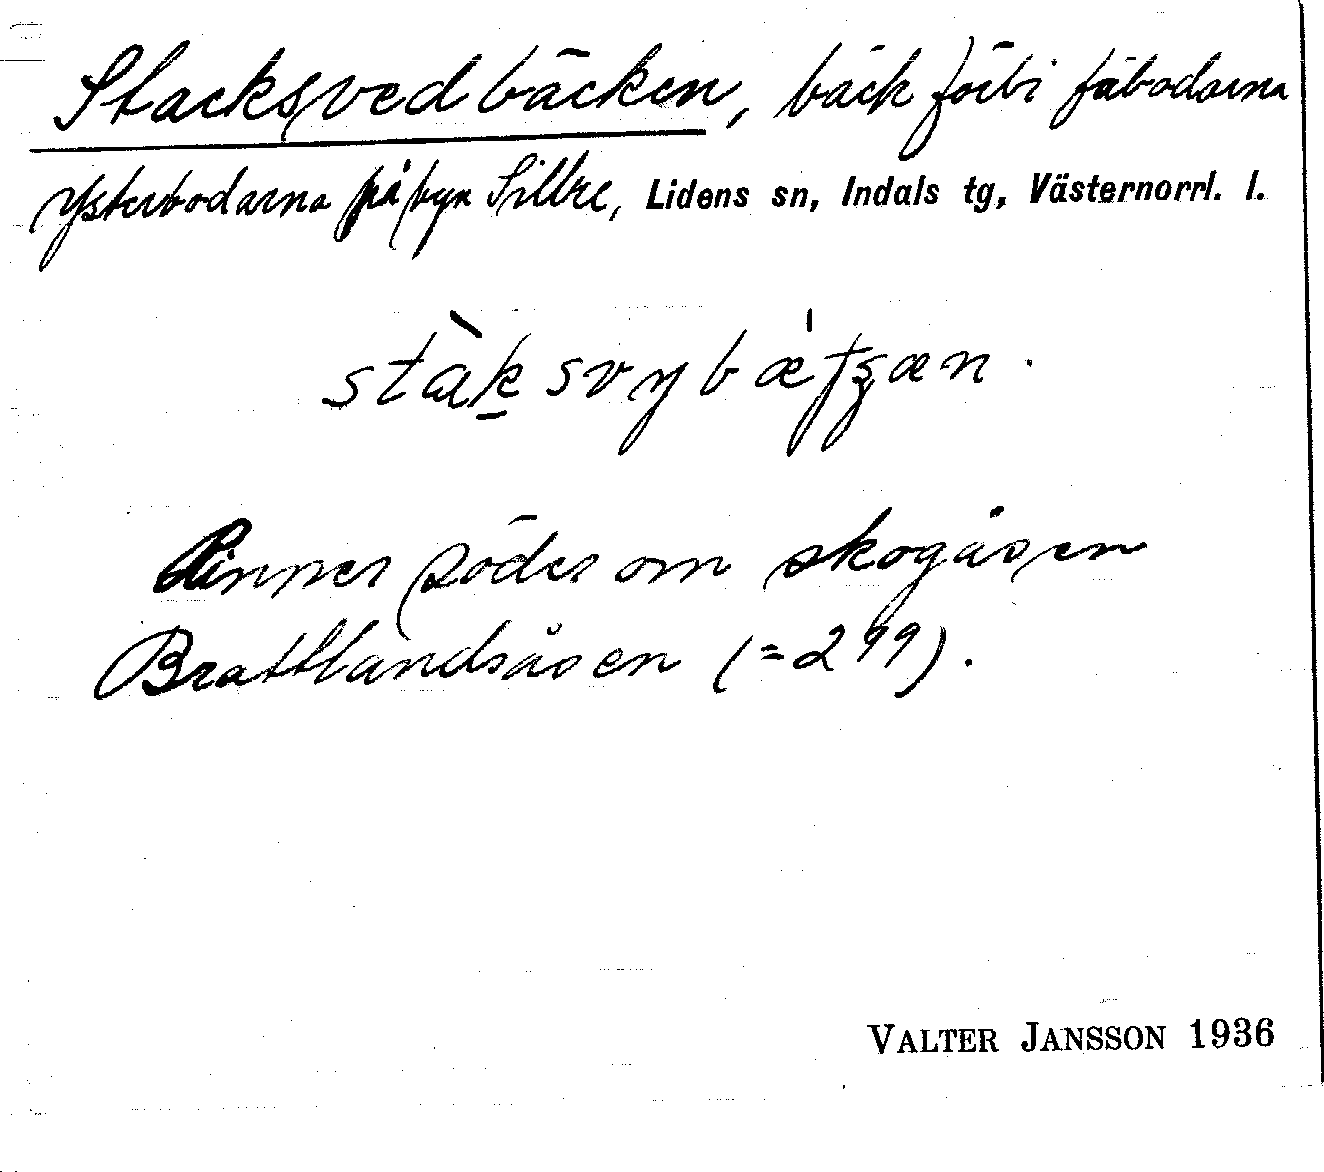 Stacksvedbäcken, bäck förbi fäbodarna
Ysterbodarna på byn Sillre, Lidens sn, Indals tg, Västernorrl. l.
stàk̠svybǽtʒæn.
Rinner söder om skogåsen
Brattlandsåsen (=299).
VALTER JANSSON 1936